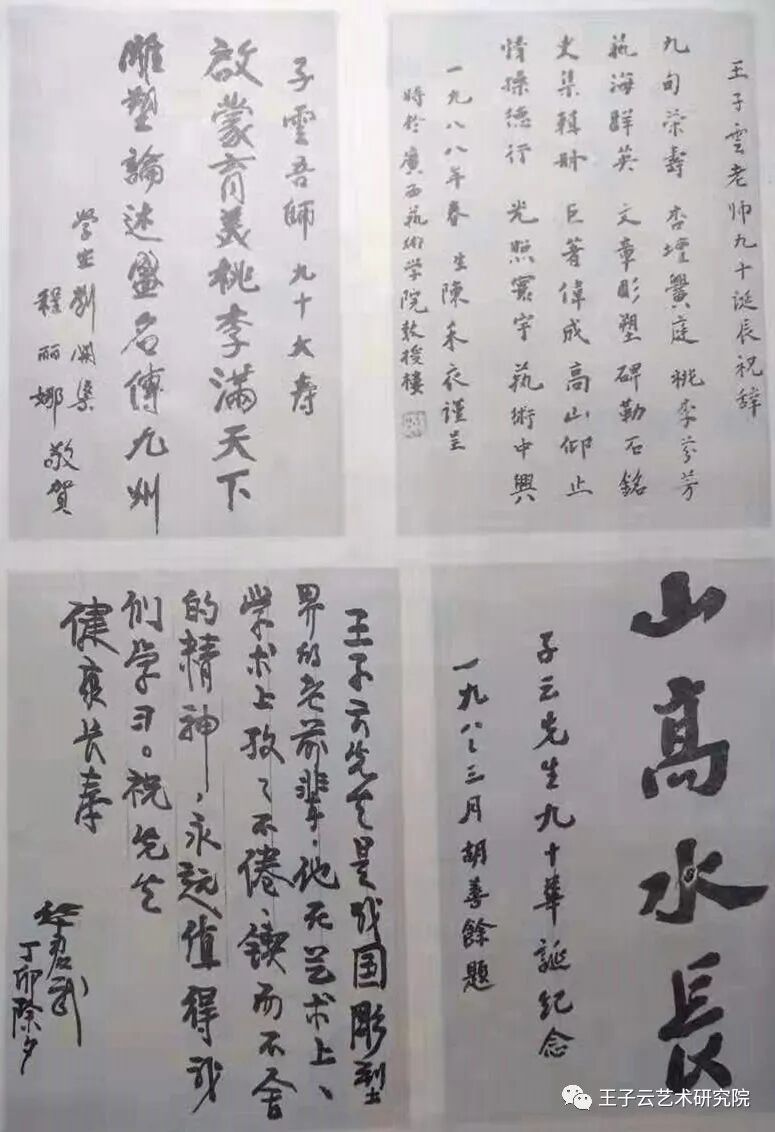 王子雲老师九十诞辰祝辞
九旬荣壽 杏壇黌庭 桃李芬芳
藝海群英 文章彫塑 碑勒石銘
史集輯 巨著偉成 高山仰止
情操德行 光照寰宇 藝術中興
一九八八年春 生陳禾衣謹呈
時於廣西藝術學院敦樓
子雲吾師 九十大壽
啟蒙育美桃李滿天下
雕塑論述盛名傳九州
学生劉開渠
程丽娜 敬賀
山高水長
子云先生九十華誕纪念
一九八八三月胡善餘题
王子云先生是我国彫塑
界的老前辈，他在艺术上、
学术上孜々不倦、锲而不舍
的精神，永远值得我
们学习。祝先生
健康长寿
华君武
丁卯除夕
王子云艺术研究院